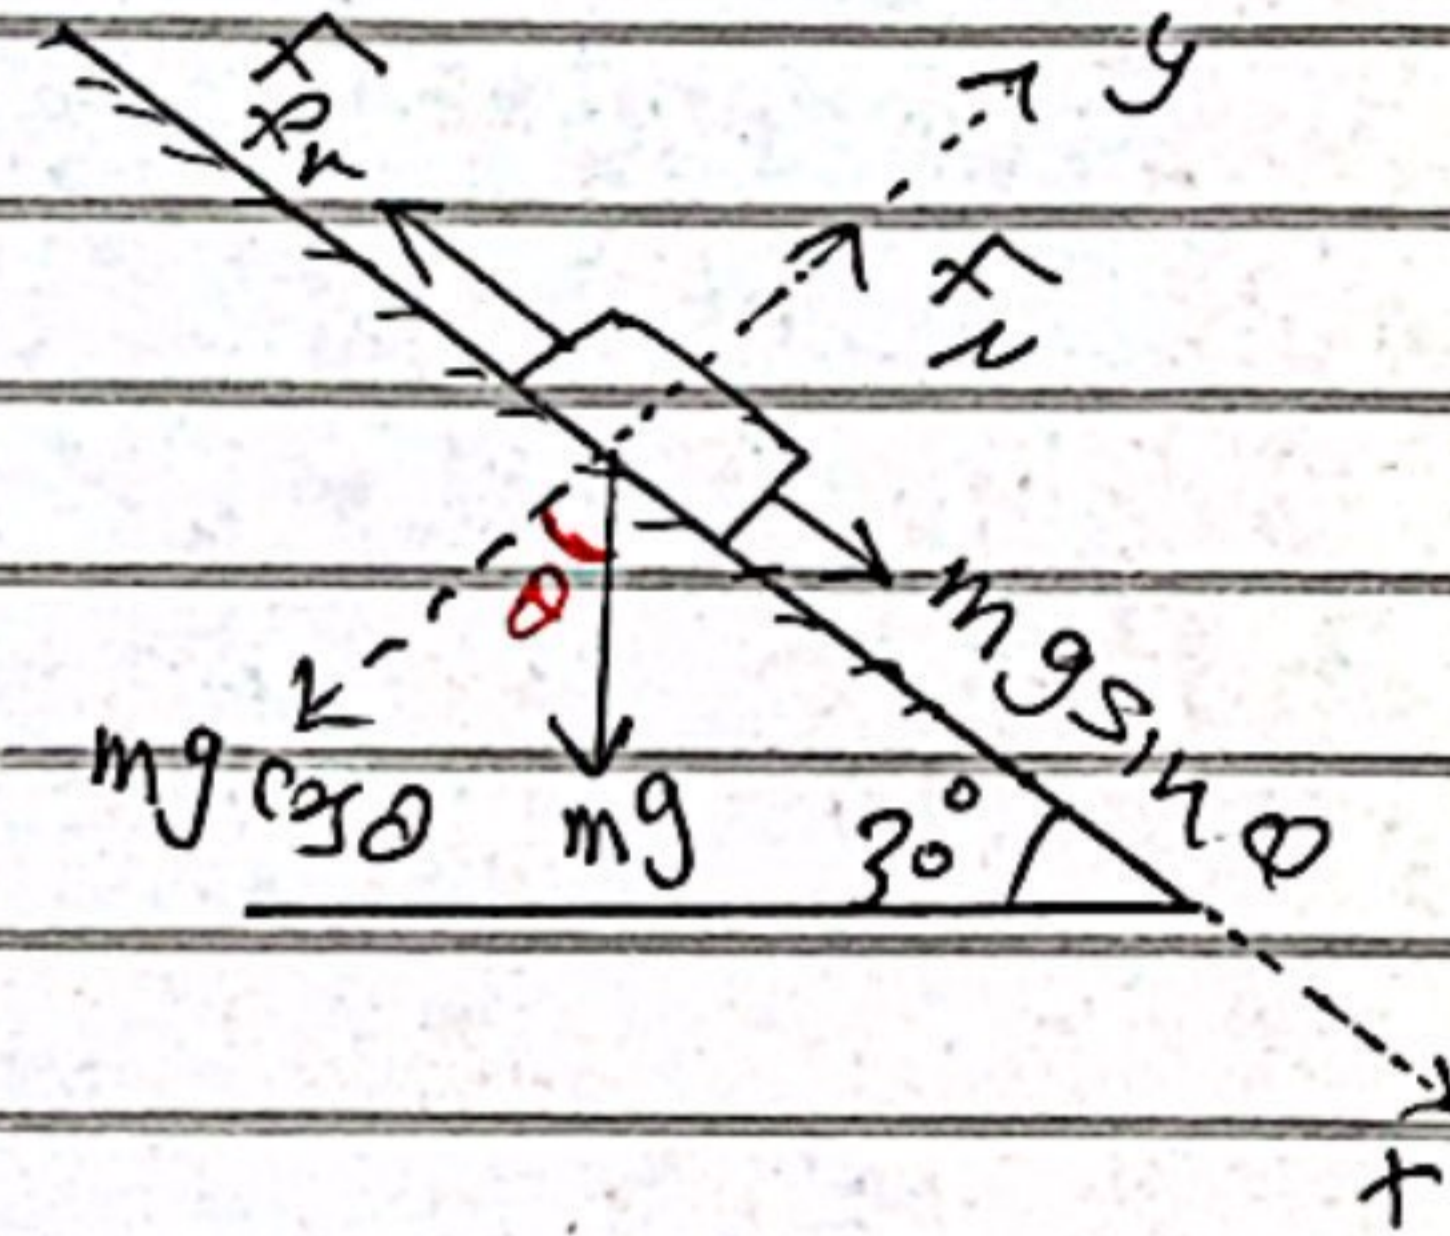 F
Fr
y
FN
mg sin θ
θ
mg cos θ
mg
30°
x